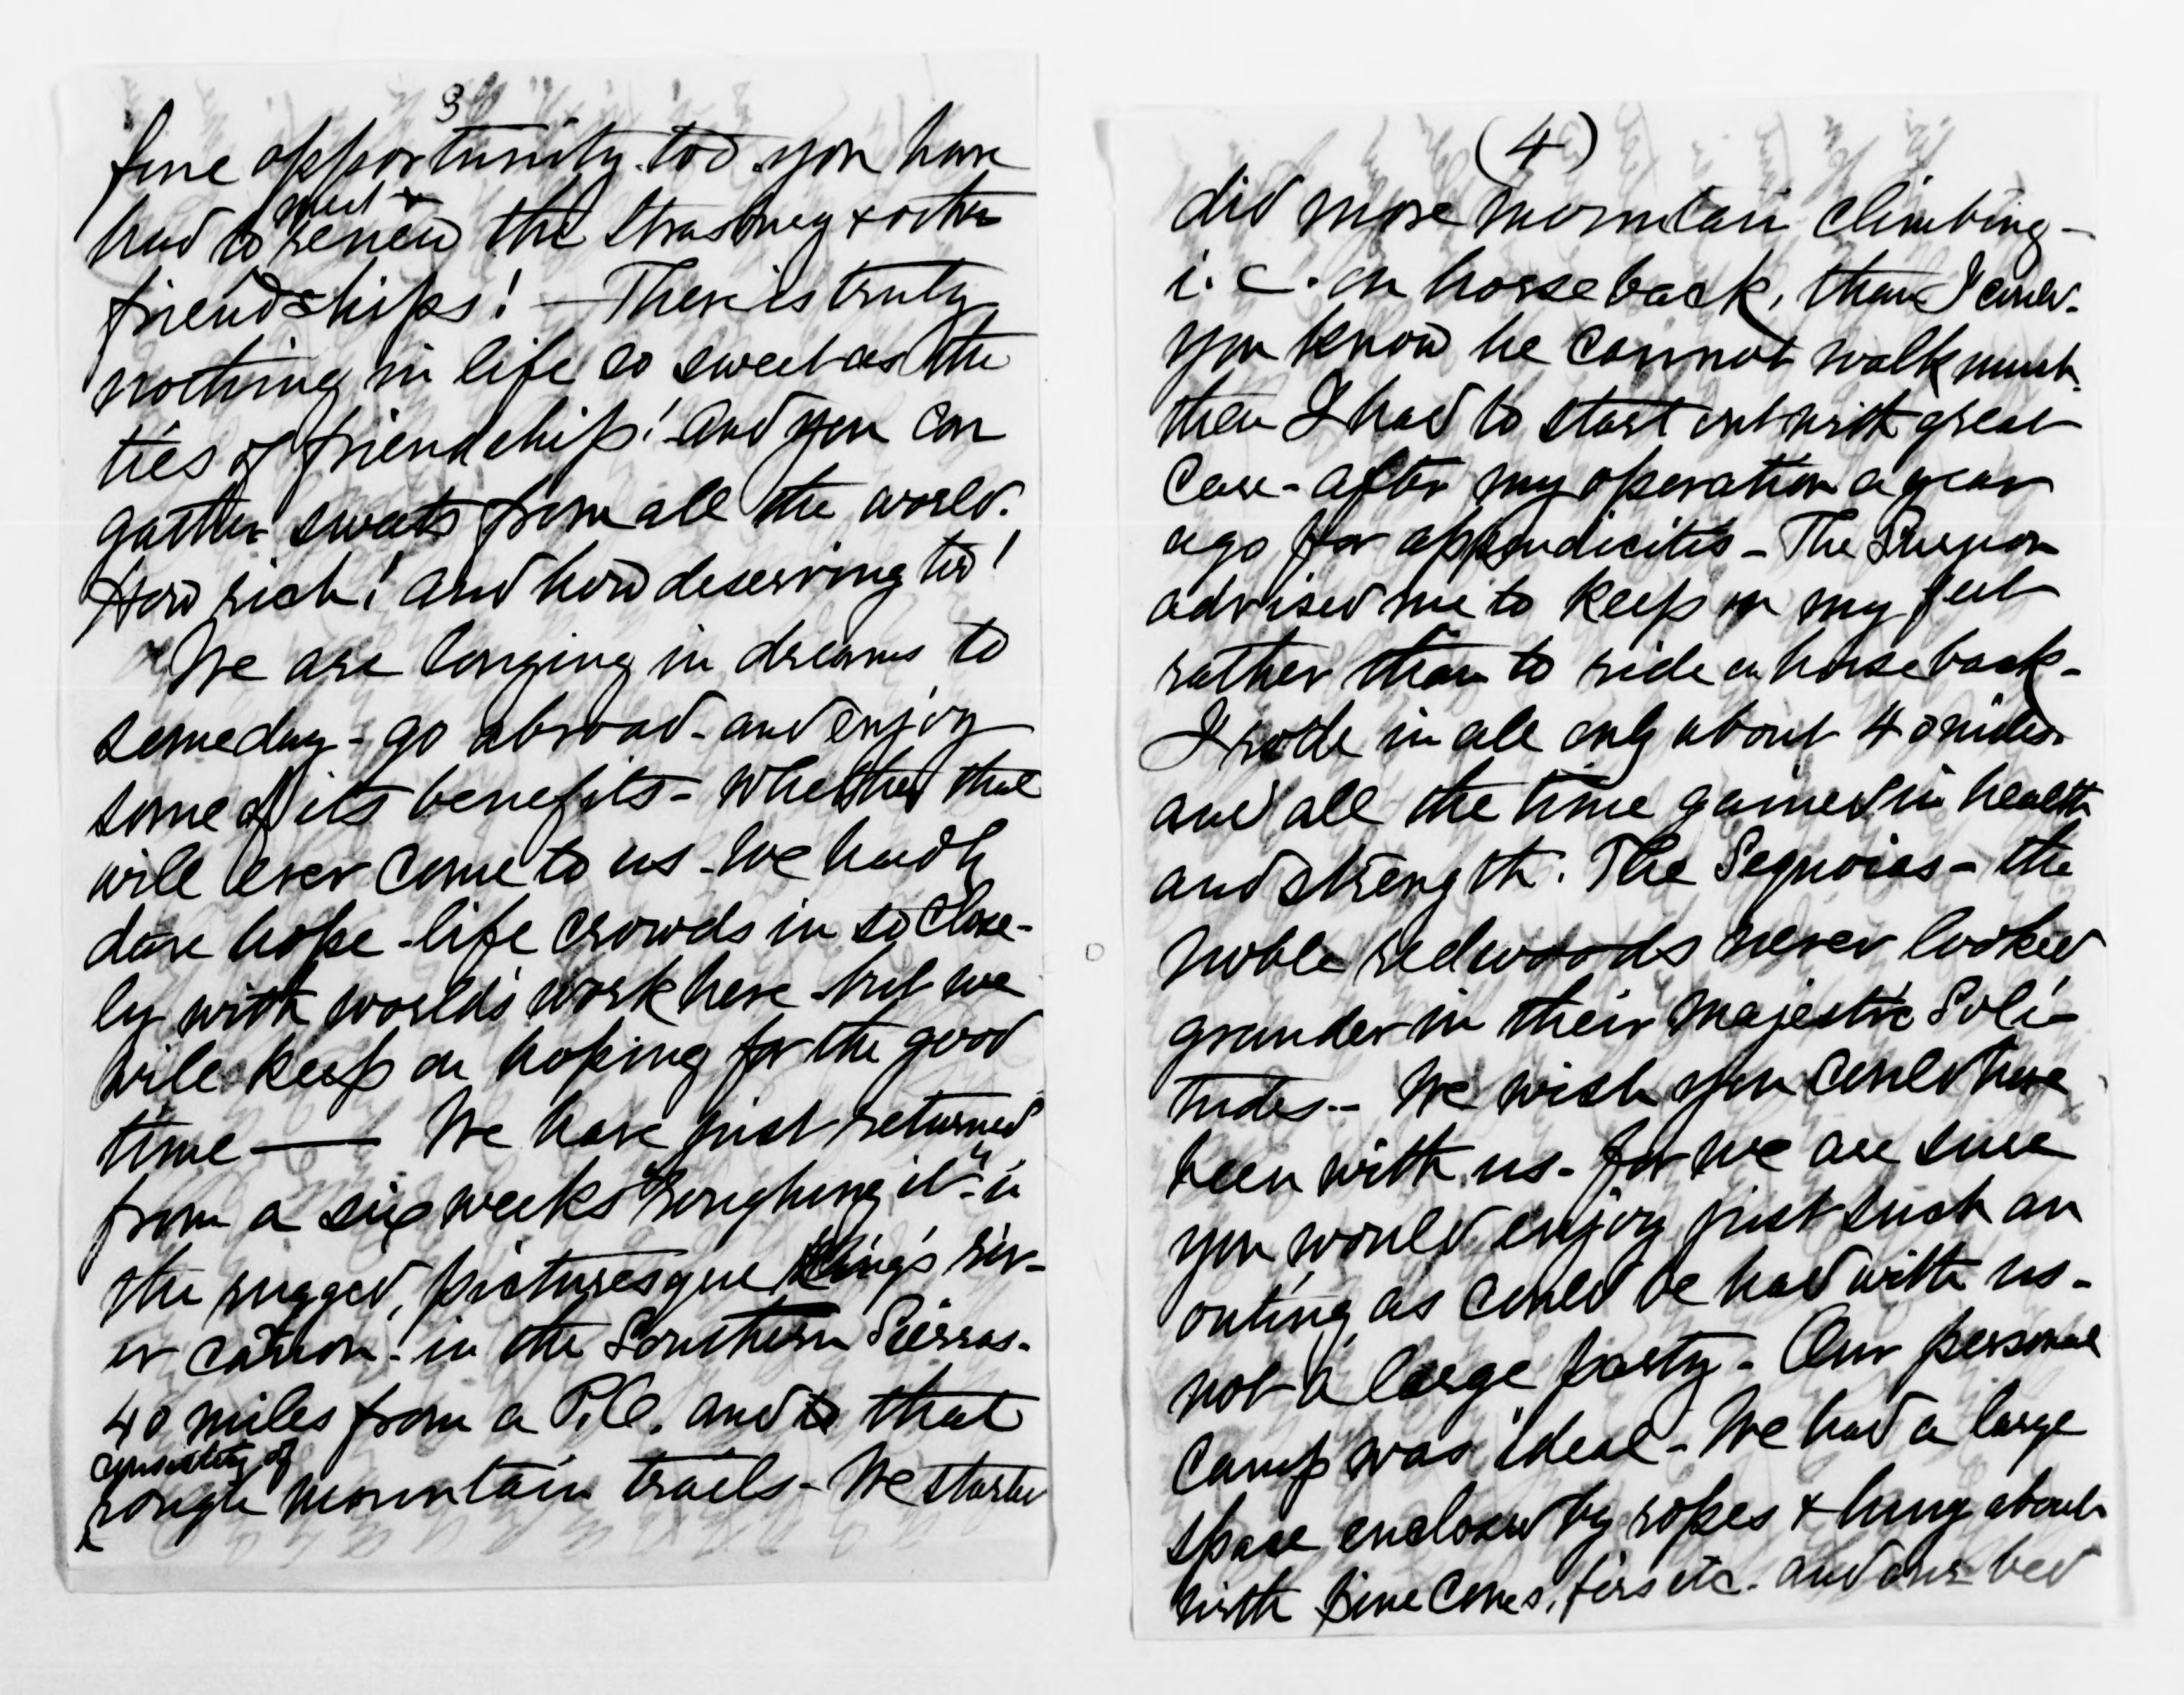 3
fine opportunity too you have
meet &
had to renew the Strasburg & other
friendships! — There is truly
nothing in life so sweet as the
ties of friendship! And you can
gather sweets from all the world.
How rich! And how deserving too!
We are longing in dreams to
someday - go abroad - and enjoy
some of its benefits - Whether that
will ever come to us - we hardly
dare hope - life crowds in so close-
ly with world's work here - but we
will keep on hoping for the good
time — We have just returned
from a six weeks "roughing it" - in
the rugged, picturesque King's riv-
er cañon - in the Southern Sierras.
40 miles from a P.O. and that
consisting of
rough mountain trails - We started
(4)
did more mountain climbing -
i.e. on horseback, than I could.
You know he cannot walk much.
then I had to start out with great
care - after my operation a year
ago for appendicitis - The Surgeon
advised me to keep on my feet
rather than to ride on horseback -
I rode in all only about 40 miles.
and all the time gained in health
and strength. The Sequoias - the
noble redwoods never looked
grander in their majestic Soli-
tudes - We wish you could have
been with us - for we are sure
you would enjoy just such an
outing as could be had with us -
not a large party - Our personal
camp was ideal - We had a large
space enclosed by ropes & hung about
with pine cones, firs etc. and our bed